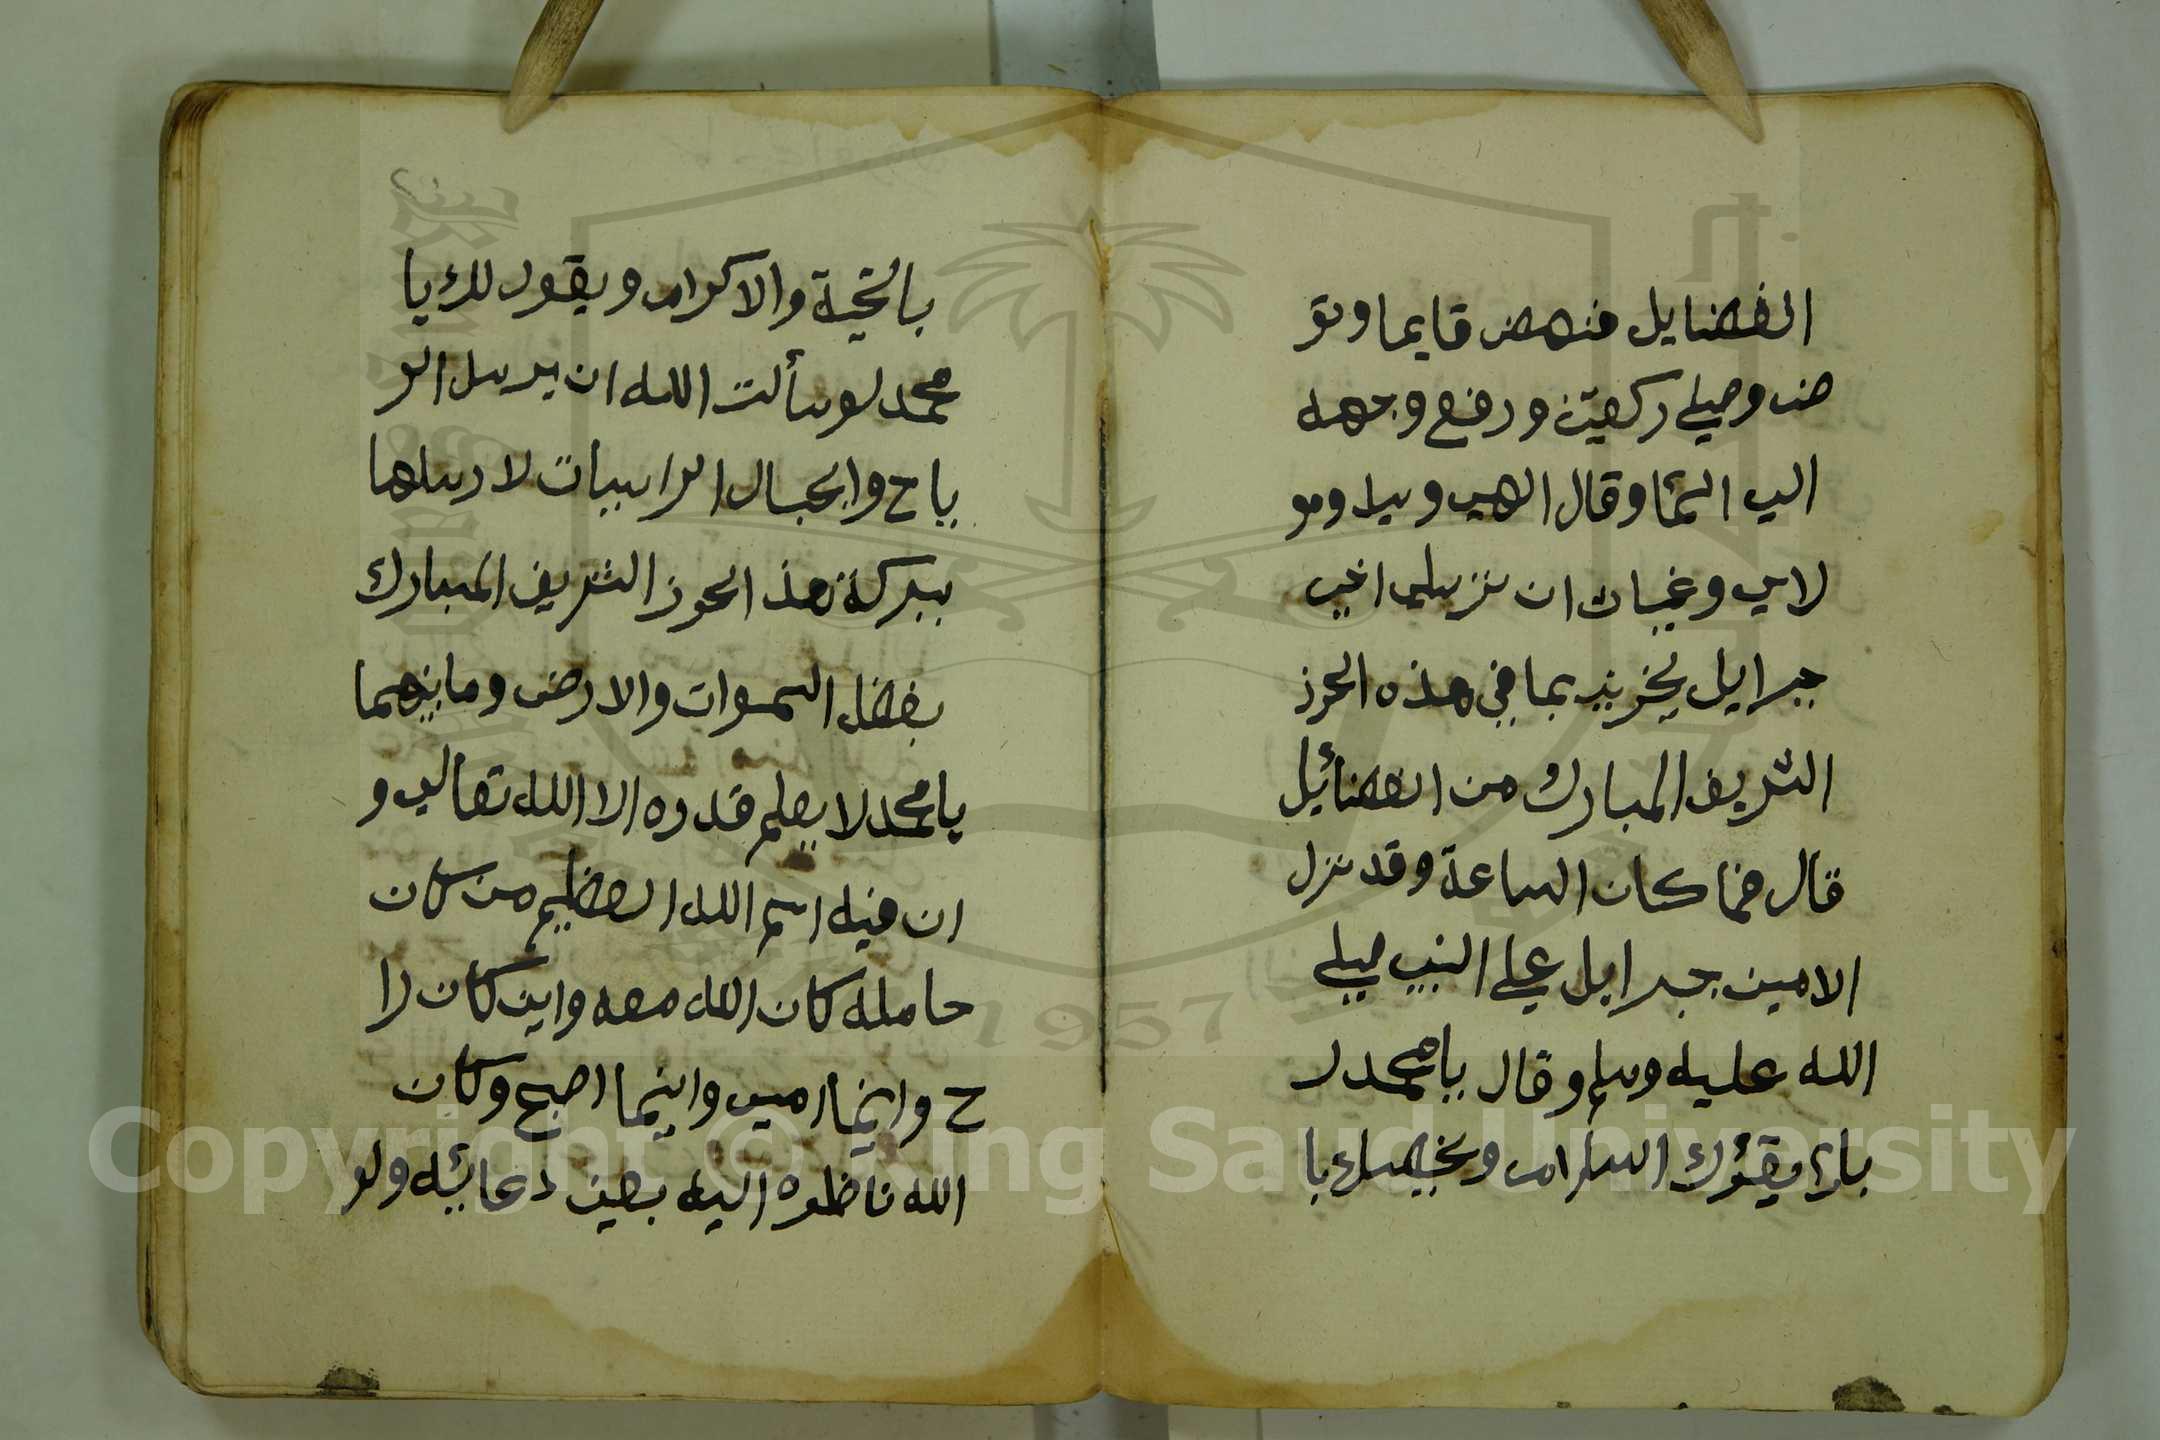 الفضايل فنهض قايما وتو
ضى وصلي ركعتين ورفع وجهه
الي السما وقال الهي وسيد ومو
لاي وغياث ان ترسلي اخي
جبرايل يخبرني بما في هذه الحرز
الشريف المبارك من الفضائيل
قال فما كان الساعة وقد نزل
الامين جبرايل علي النبي صلي
الله عليه وسلم وقال يامحمد ر
باك يقرؤك السلام ويخصك با
بالتحية والاكرام ويقول لك يا
محمد لو سألت الله ان يرسل الر
ياح والجبال الراسيات لارسلها
ببركة هذ الحرز الشريف المبارك
بفضل السموات والارض وما بينهما
يا محمد لا يعلم قدره الا الله تعالي و
ان فيه اسم الله العظيم من كان
حامله كان الله معه واين كان را
ح واينما امسي واينما اصبح وكان
الله ناظره اليه بعين دعائيه ولو
King Saud University
1957
Copyright © King Saud University